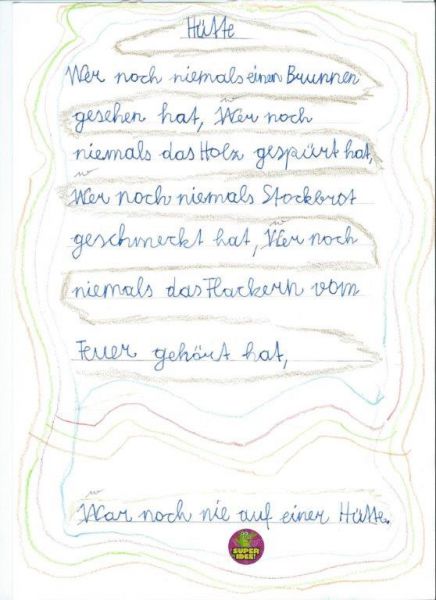 Hütte
Wer noch niemals einen Brunnen
gesehen hat, Wer noch
niemals das Holz gespürt hat,
Wer noch niemals Stockbrot
geschmeckt hat, Wer noch
niemals das Flackern vom
Feuer gehört hat,
War noch nie auf einer Hütte.
SUPER
IDEE!